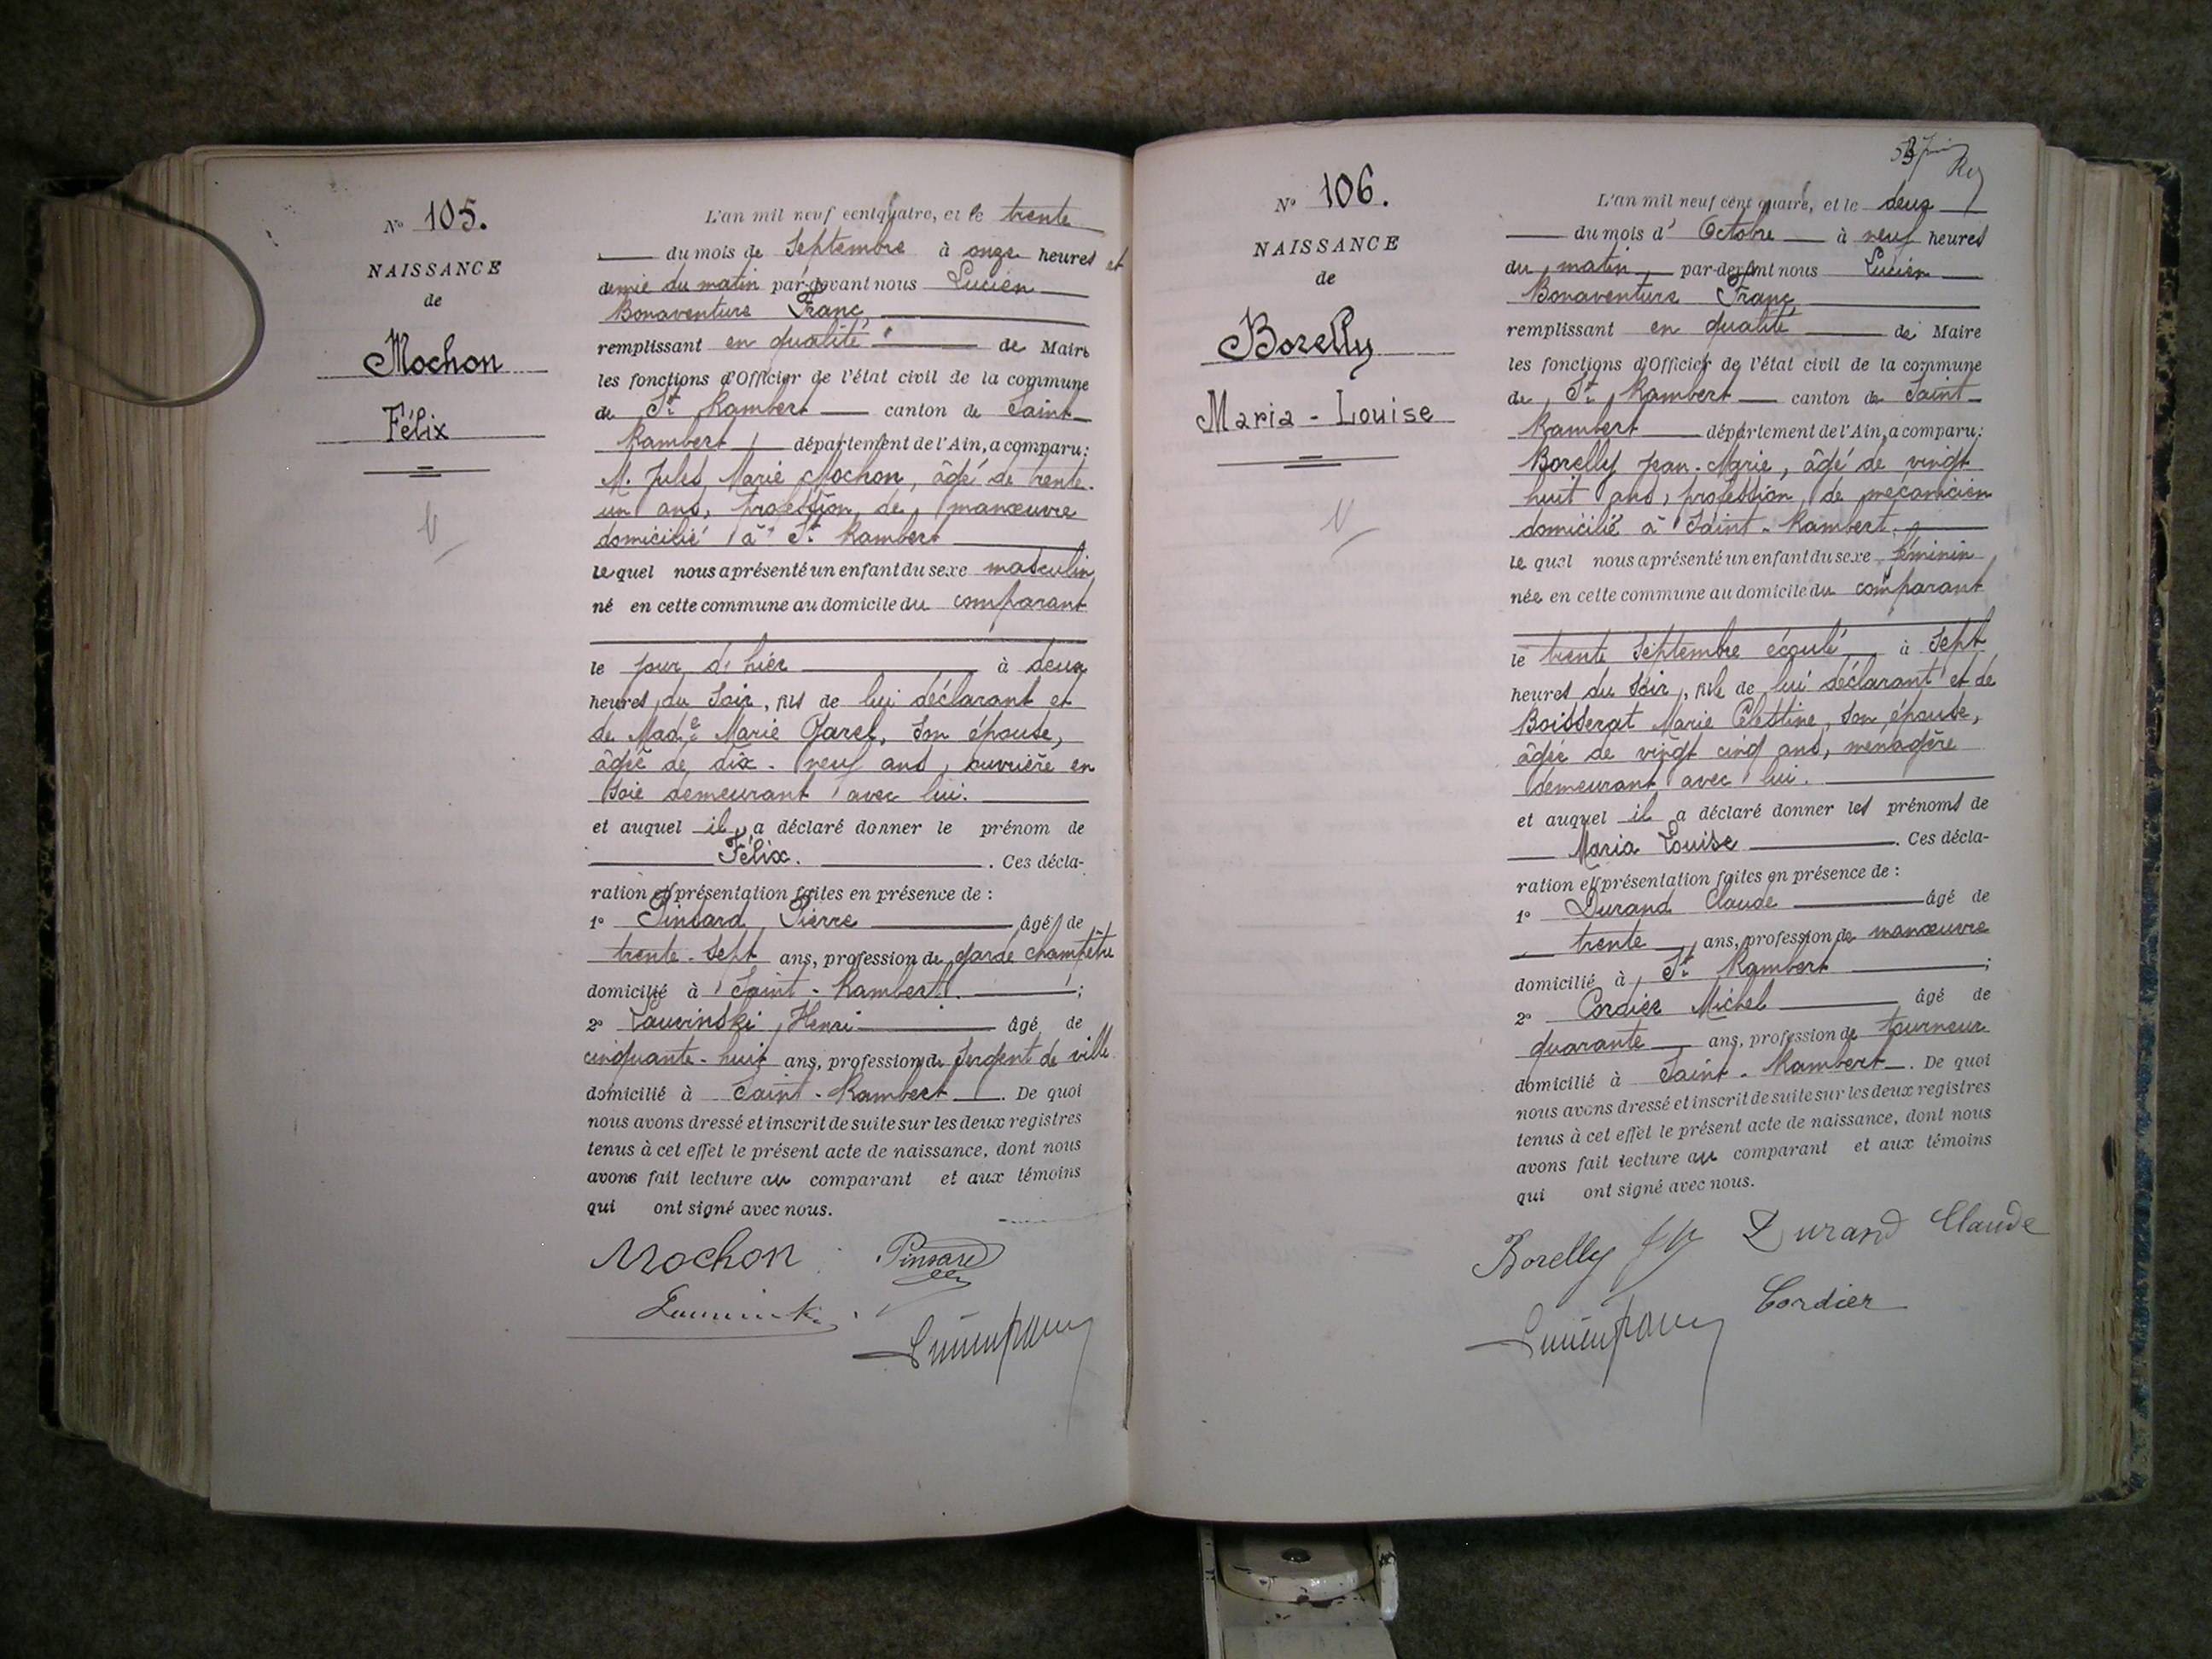 No 105.
NAISSANCE
de
Mochon
Félix
L'an mil neuf cent quatre, et le trente
du mois de Septembre à onze heures et
demie du matin par-devant nous Lucien
Bonaventure Franc,
remplissant en qualité de Maire
les fonctions d'Officier de l'état civil de la commune
de St Rambert canton de Saint-
Rambert département de l'Ain, a comparu:
M. Jules Marie Mochon, âgé de trente-
un ans, profession de manœuvre
domicilié à St Rambert
lequel nous a présenté un enfant du sexe masculin
né en cette commune au domicile du comparant
le jour d'hier à deux
heures du soir, fils de lui déclarant et
de Made Marie Garel, son épouse,
âgée de dix-neuf ans, ouvrière en
soie demeurant avec lui.
et auquel il a déclaré donner le prénom de
Félix. . Ces décla-
ration et présentation faites en présence de :
1o Pinsard Pierre âgé de
trente-sept ans, profession de garde champêtre
domicilié à Saint-Rambert. ;
2o Henri âgé de
cinquante-huit ans, profession de sergent de ville
domicilié à Saint-Rambert. De quoi
nous avons dressé et inscrit de suite sur les deux registres
tenus à cet effet le présent acte de naissance, dont nous
avons fait lecture au comparant et aux témoins
qui ont signé avec nous.
Mochon Pinsard
Lucien Franc
No 106.
NAISSANCE
de
Borelly
Maria-Louise
L'an mil neuf cent quatre, et le deux
du mois d'Octobre à neuf heures
du matin par-devant nous Lucien
Bonaventure Franc,
remplissant en qualité de Maire
les fonctions d'Officier de l'état civil de la commune
de St Rambert canton de Saint-
Rambert département de l'Ain, a comparu:
Borelly Jean-Marie, âgé de vingt
huit ans, profession de mécanicien
domicilié à Saint-Rambert.
lequel nous a présenté un enfant du sexe féminin
née en cette commune au domicile du comparant
le trente Septembre écoulé à sept
heures du soir, fille de lui déclarant et de
Boisserat Marie Célestine, son épouse,
âgée de vingt cinq ans, ménagère
demeurant avec lui.
et auquel il a déclaré donner les prénoms de
Maria Louise . Ces décla-
ration et présentation faites en présence de :
1o Durand Claude âgé de
trente ans, profession de manœuvre
domicilié à St Rambert ;
2o Cordier Michel âgé de
quarante ans, profession de tourneur
domicilié à Saint-Rambert. De quoi
nous avons dressé et inscrit de suite sur les deux registres
tenus à cet effet le présent acte de naissance, dont nous
avons fait lecture au comparant et aux témoins
qui ont signé avec nous.
Borelly Durand Claude
Lucien Franc Cordier